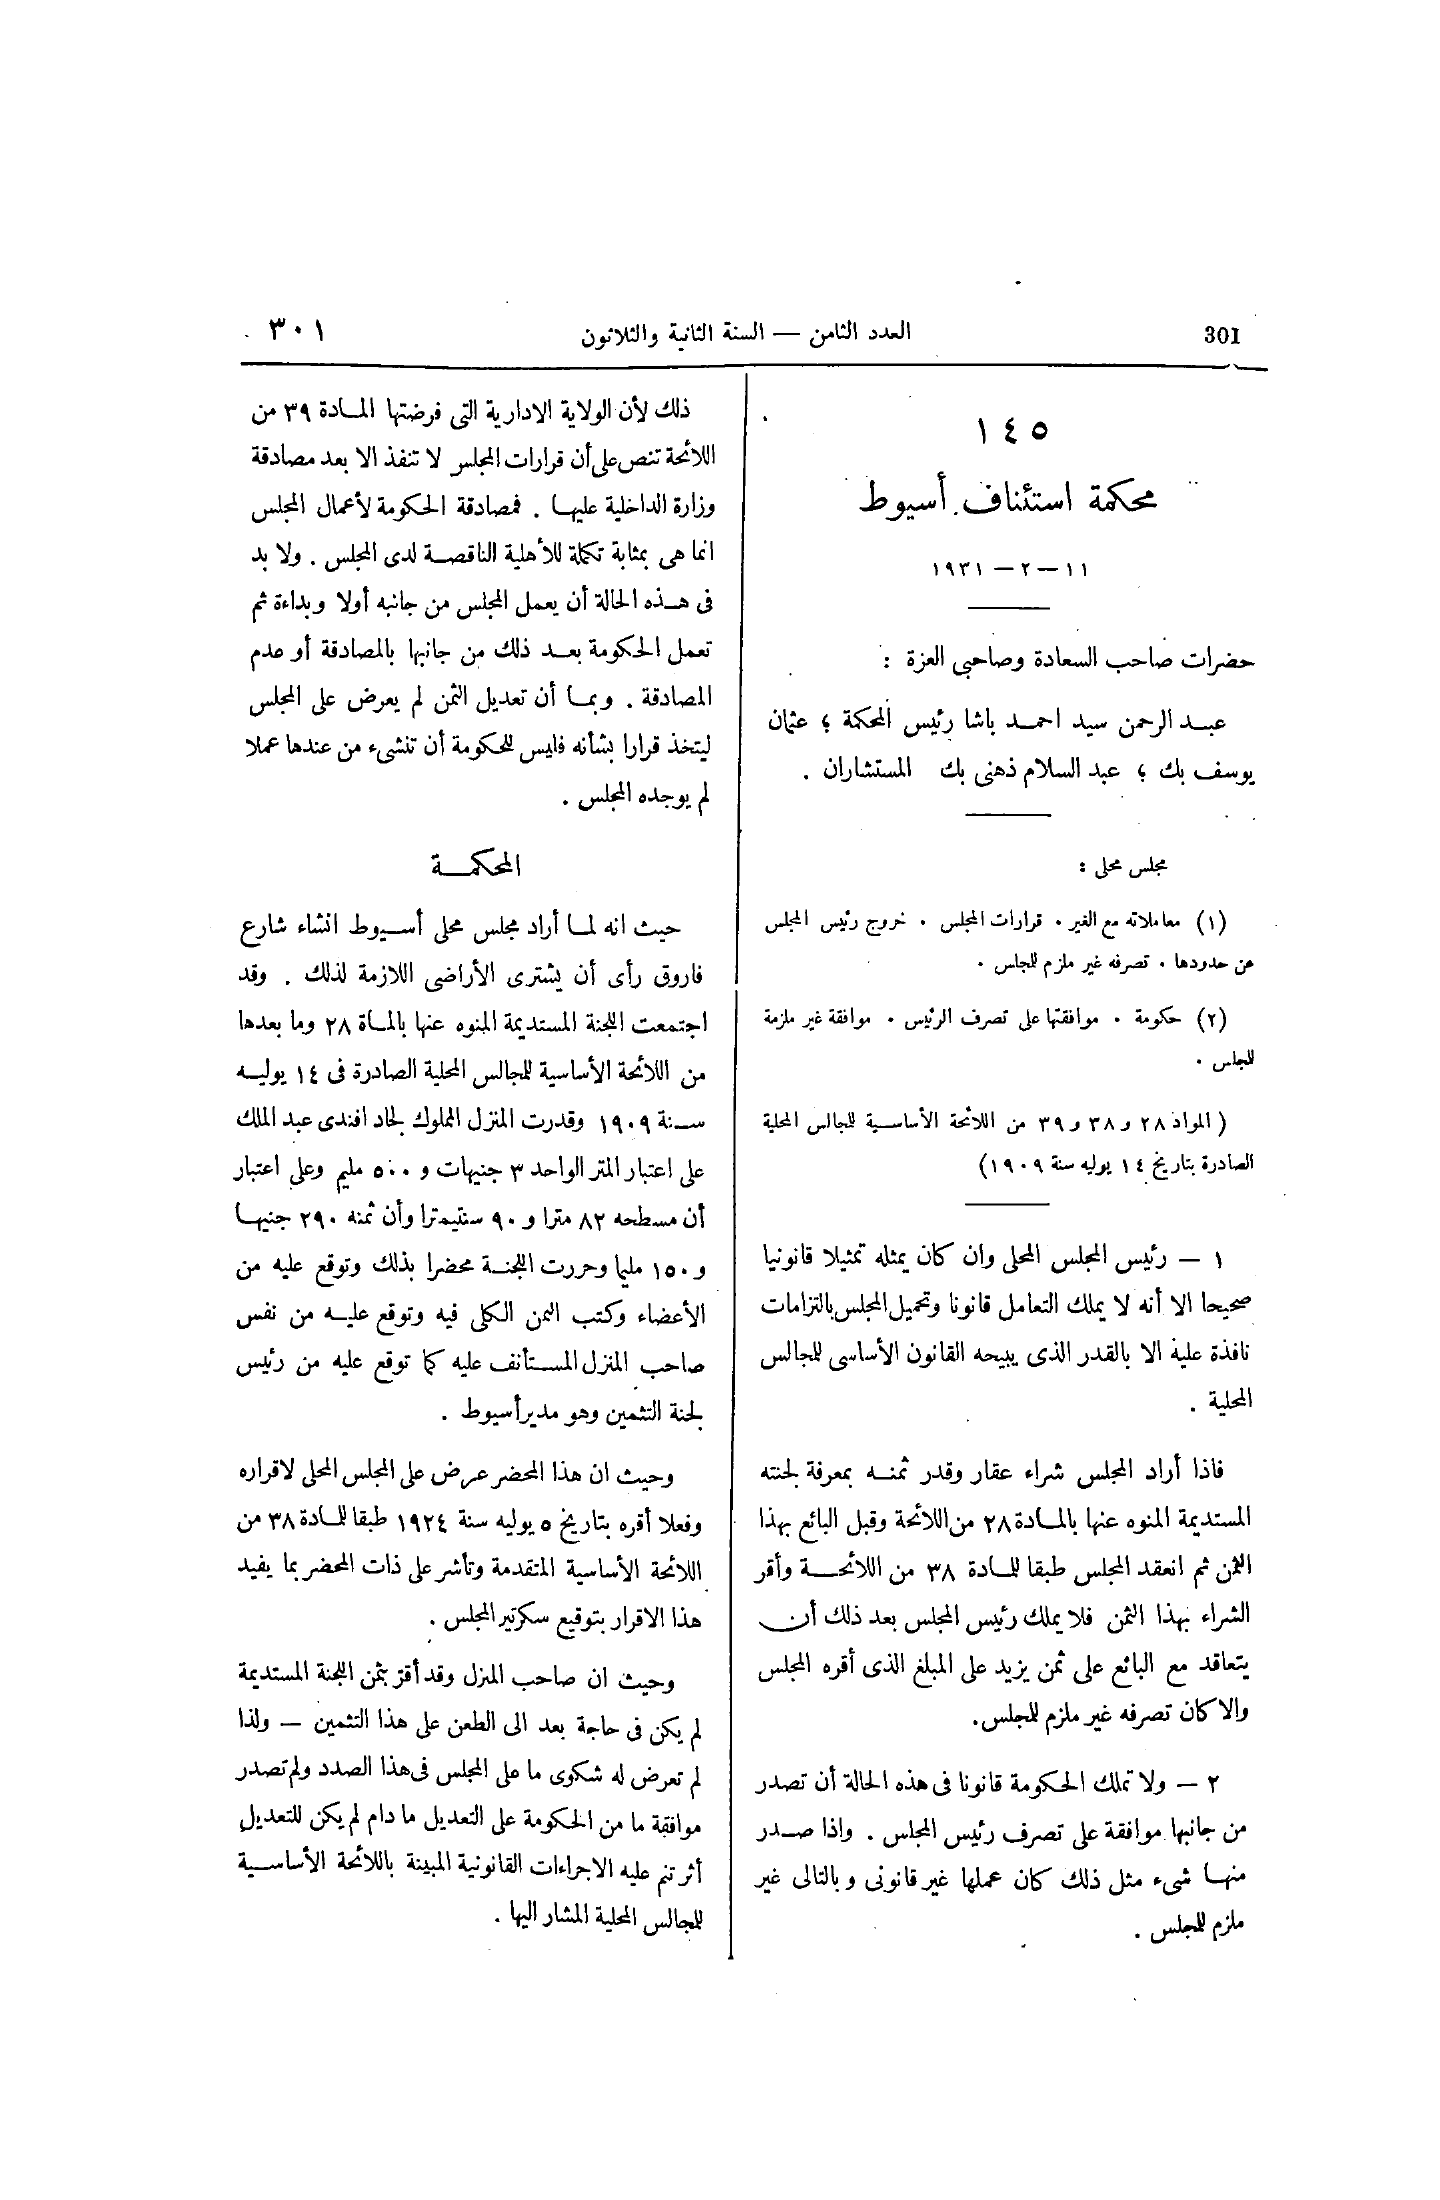 301
العدد الثامن — السنة الثانية والثلاثون
٣٠١
١٤٥
محكمة استئناف أسيوط
١١ — ٢ — ١٩٣١
حضرات صاحب السعادة وصاحبى العزة :
عبد الرحمن سيد احمد باشا رئيس المحكمة ؛ عثمان
يوسف بك ؛ عبد السلام ذهنى بك المستشاران .
مجلس محلى :
(١) معاملاته مع الغير . قرارات المجلس . خروج رئيس المجلس
عن حدودها . تصرفه غير ملزم للمجلس .
(٢) حكومة . موافقتها على تصرف الرئيس . موافقة غير ملزمة
للمجلس .
( المواد ٢٨ و ٣٨ و ٣٩ من اللائحة الأساسية للمجالس المحلية
الصادرة بتاريخ ١٤ يوليه سنة ١٩٠٩)
١ — رئيس المجلس المحلى وان كان يمثله تمثيلا قانونيا
صحيحا الا أنه لا يملك التعامل قانونا وتحميل المجلس بالتزامات
نافذة عليه الا بالقدر الذى يبيحه القانون الأساسى للمجالس
المحلية .
فاذا أراد المجلس شراء عقار وقدر ثمنه بمعرفة لجنته
المستديمة المنوه عنها بالمادة ٢٨ من اللائحة وقبل البائع بهذا
الثمن ثم انعقد المجلس طبقا للمادة ٣٨ من اللائحة وأقر
الشراء بهذا الثمن فلا يملك رئيس المجلس بعد ذلك أن
يتعاقد مع البائع على ثمن يزيد على المبلغ الذى أقره المجلس
والا كان تصرفه غير ملزم للمجلس.
٢ — ولا تملك الحكومة قانونا فى هذه الحالة أن تصدر
من جانبها موافقة على تصرف رئيس المجلس . واذا صدر
منها شىء مثل ذلك كان عملها غير قانونى وبالتالى غير
ملزم للمجلس .
ذلك لأن الولاية الادارية التى فرضتها المادة ٣٩ من
اللائحة تنص على أن قرارات المجلس لا تنفذ الا بعد مصادقة
وزارة الداخلية عليها . فمصادقة الحكومة لأعمال المجلس
انما هى بمثابة تكملة للأهلية الناقصة لدى المجلس . ولا بد
فى هذه الحالة أن يعمل المجلس من جانبه أولا وبداءة ثم
تعمل الحكومة بعد ذلك من جانبها بالمصادقة أو عدم
المصادقة . وبما أن تعديل الثمن لم يعرض على المجلس
ليتخذ قرارا بشأنه فليس للحكومة أن تنشىء من عندها عملا
لم يوجده المجلس .
المحكمة
حيث انه لما أراد مجلس محلى أسيوط انشاء شارع
فاروق رأى أن يشترى الأراضى اللازمة لذلك . وقد
اجتمعت اللجنة المستديمة المنوه عنها بالماة ٢٨ وما بعدها
من اللائحة الأساسية للمجالس المحلية الصادرة فى ١٤ يوليه
سنة ١٩٠٩ وقدرت المنزل المملوك لجاد افندى عبد الملك
على اعتبار المتر الواحد ٣ جنيهات و ٥٠٠ مليم وعلى اعتبار
أن مسطحه ٨٢ مترا و ٩٠ سنتيمترا وأن ثمنه ٢٩٠ جنيها
و ١٥٠ مليما وحررت اللجنة محضرا بذلك وتوقع عليه من
الأعضاء وكتب الثمن الكلى فيه وتوقع عليه من نفس
صاحب المنزل المستأنف عليه كما توقع عليه من رئيس
لجنة التثمين وهو مدير أسيوط .
وحيث ان هذا المحضر عرض على المجلس المحلى لاقراره
وفعلا أقره بتاريخ ٥ يوليه سنة ١٩٢٤ طبقا للمادة ٣٨ من
اللائحة الأساسية المتقدمة وتأشر على ذات المحضر بما يفيد
هذا الاقرار بتوقيع سكرتير المجلس .
وحيث ان صاحب المنزل وقد أقر بثمن اللجنة المستديمة
لم يكن فى حاجة بعد الى الطعن على هذا التثمين — ولذا
لم تعرض له شكوى ما على المجلس فى هذا الصدد ولم تصدر
موافقة ما من الحكومة على التعديل ما دام لم يكن للتعديل
أثر تتم عليه الاجراءات القانونية المبينة باللائحة الأساسية
للمجالس المحلية المشار اليها .